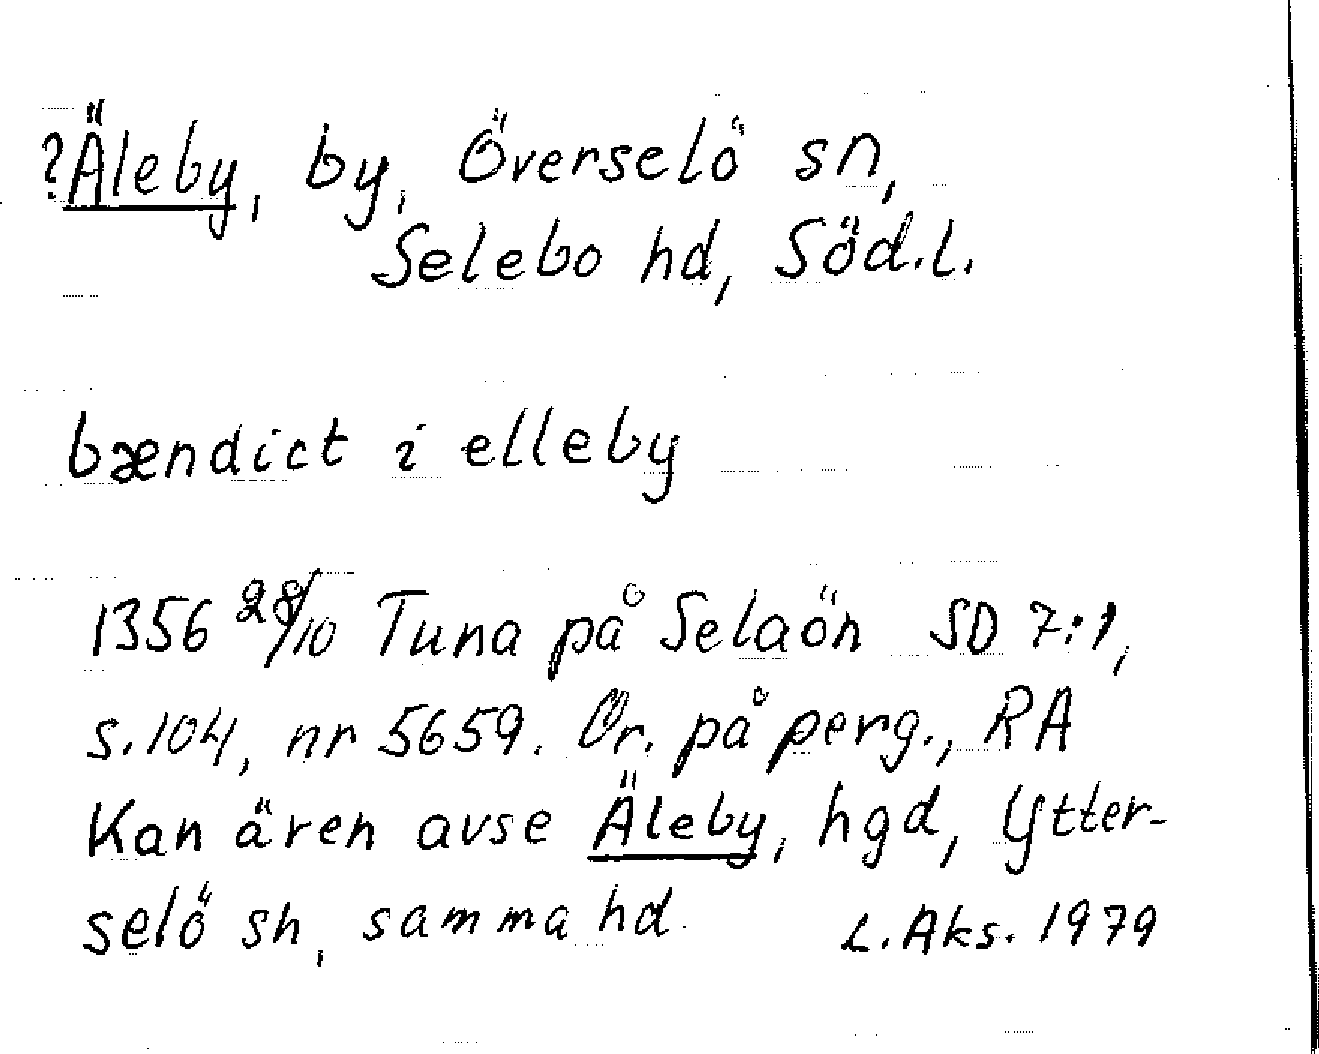 ?Äleby, by, Överselö sn,
Selebo hd, Söd.l.
bændict i elleby
1356 28/10 Tuna på Selaön SD 7:1,
s.104, nr 5659. Or. på perg., RA
Kan ären avse Äleby, hgd, Ytter-
selö sn, samma hd.
L. Aks. 1979